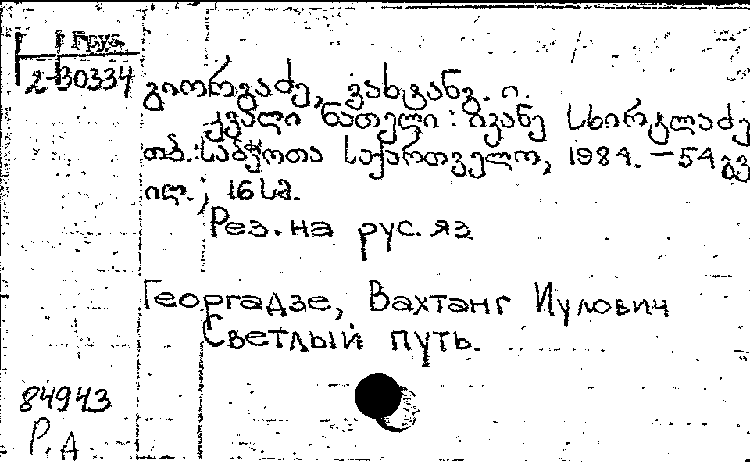 Груз.
2-30334
გიორგაძე, ვახტანგ. ი.
კვალი ნათელი: ივანე სხირტლაძე
თბ.: საბჭოთა საქართველო, 1984. — 54 გვ
ილ.; 16 სმ.
Рез. на рус. яз
Георгадзе, Вахтанг Иулович
Светлый путь.
84943
Р. А